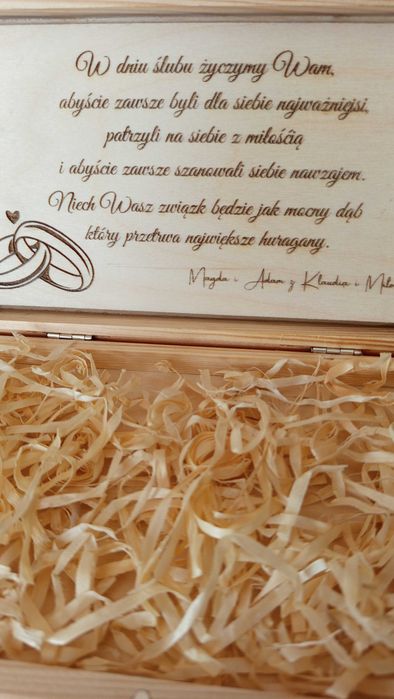 W dniu ślubu życzymy Wam,
abyście zawsze byli dla siebie najważniejsi,
patrzyli na siebie z miłośćią
i abyście zawsze szanowali siebie nawzajem.
Niech Wasz związk będzie jak mocny dąb
który przetrwa największe huragany.
Magda i Adam z Klaudia i